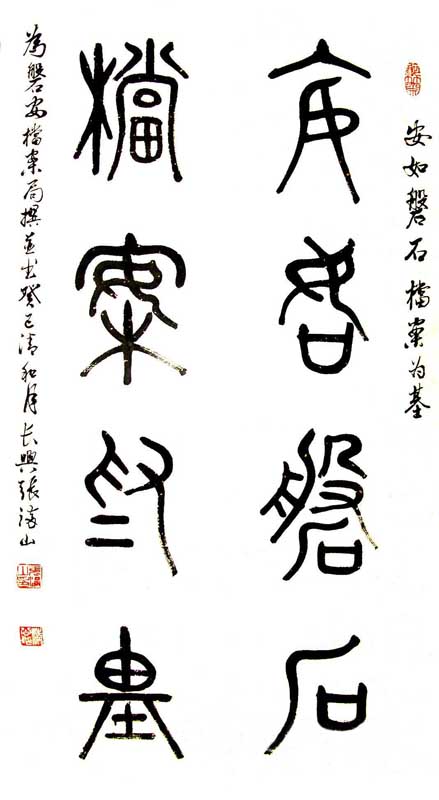 安如磐石 檔案为基
安如磐石
檔案為基
為磐安檔案局撰並书癸巳清和月长興張山